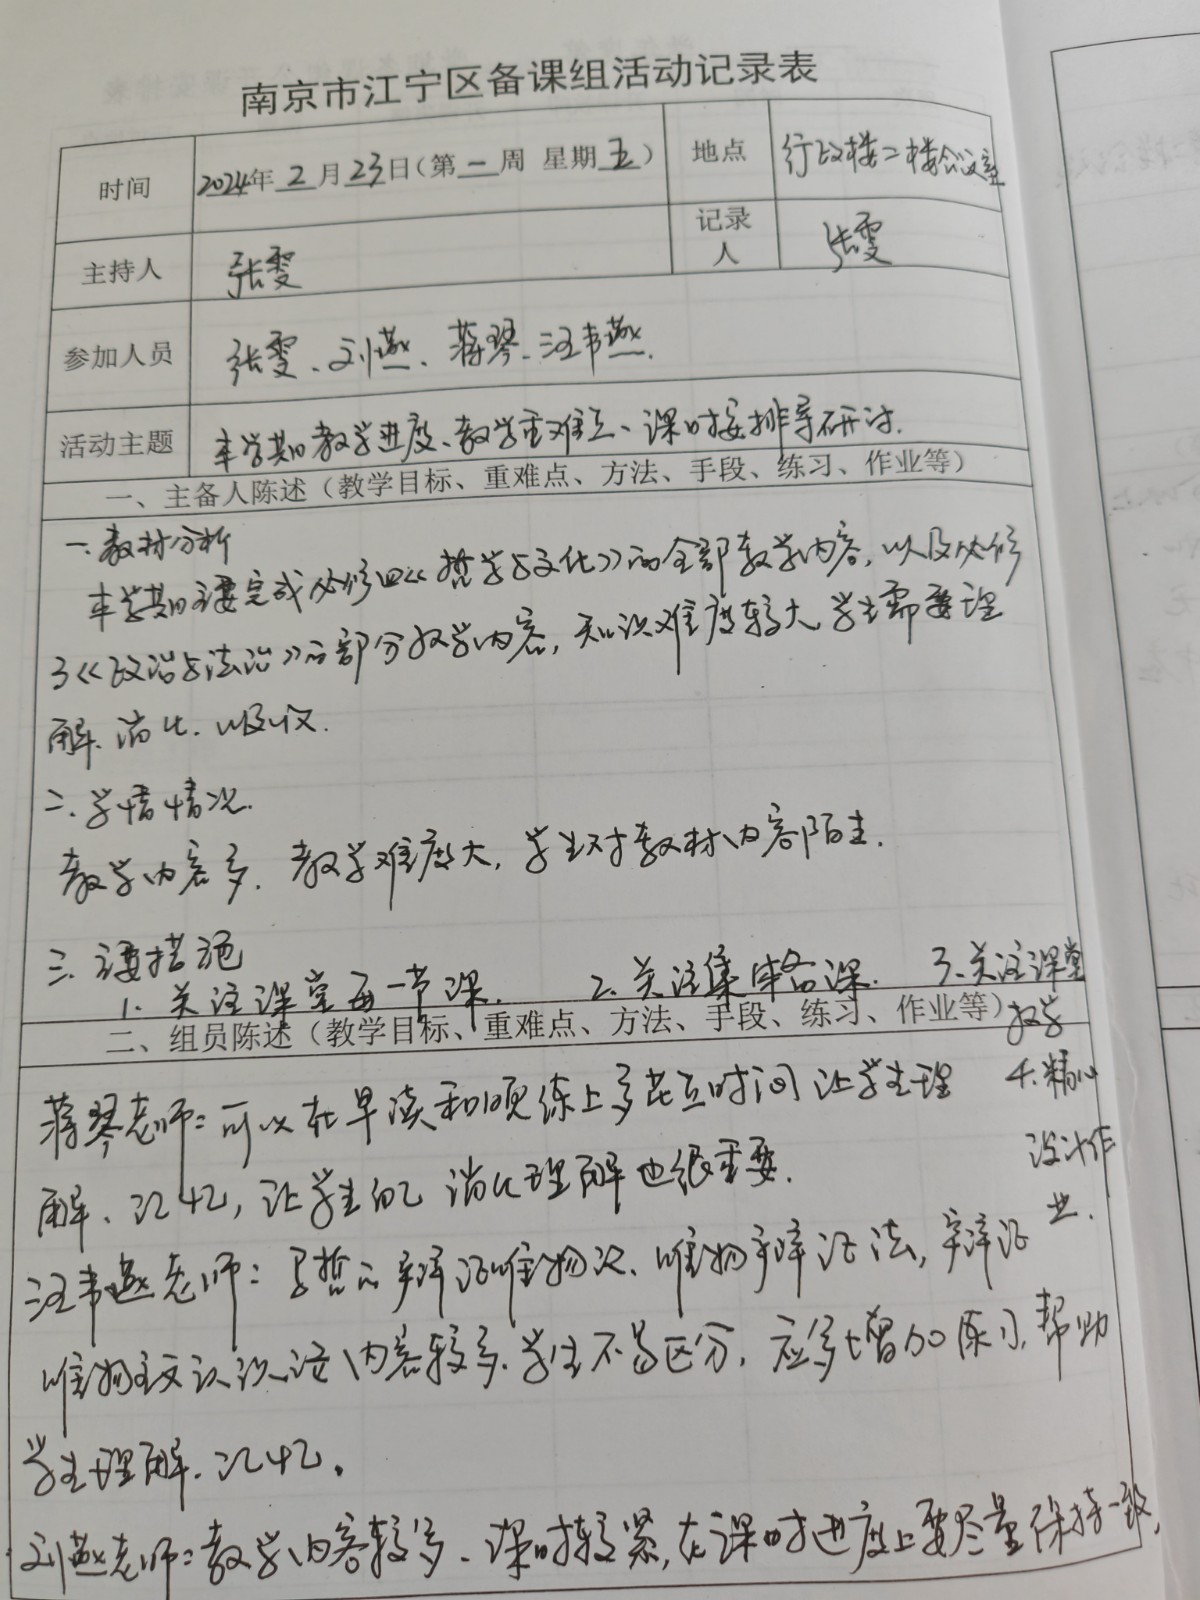 南京市江宁区备课组活动记录表
时间 2024年 2 月 23日(第 一 周 星期 五 ) 地点 行政楼二楼会议室
主持人 张雯 记录人 张雯
参加人员 张雯、刘燕、蒋琴、汪韦燕.
活动主题 本学期教学进度、教学重难点、课时安排等研讨.
一、主备人陈述（教学目标、重难点、方法、手段、练习、作业等）
一.教材分析
本学期主要完成必修四《哲学与文化》的全部教学内容，以及必修
3《政治与法治》的部分教学内容，知识难度较大，学生需要理
解、消化、吸收.
二.学情情况.
教学内容多、教学难度大，学生对教材内容陌生.
三.主要措施
1. 关注课堂每一节课. 2. 关注集体备课. 3.关注课堂
教学
4.精心
设计作
业.
二、组员陈述（教学目标、重难点、方法、手段、练习、作业等）
蒋琴老师：可以在早读和默练上多花点时间 让学生理
解、记忆，让学生自己 消化理解也很重要.
汪韦燕老师：哲的辩证唯物论、唯物辩证法，辩证
唯物主义认识论内容较多、学生不易区分，应多增加练习，帮助
学生理解、记忆。
刘燕老师：教学内容较多、课时较紧，在课时进度上要尽量保持一致，